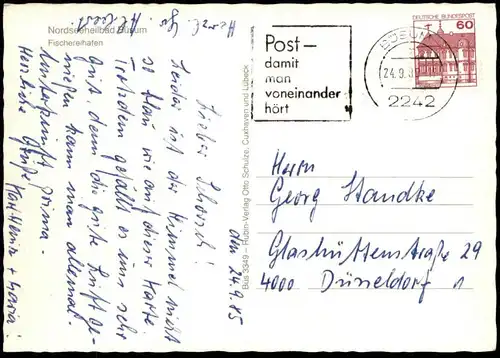 Nordseeheilbad Büsum
Fischereihafen
den 24.9.85
Lieber Schorsch!
Leider ist der Himmel nicht
so blau wie auf dieser Karte.
Trotzdem gefällt es uns sehr
gut, denn die gute Luft ge-
nießen kann man allemal.
Unterkunft prima.
Herzliche Grüße Karl Heinz + Maria
Büs 3349 – Rubin-Verlag Otto Schulze, Cuxhaven und Lübeck
Post –
damit
man
voneinander
hört
BÜSUM
24.9.
2242
DEUTSCHE BUNDESPOST
60
Herrn
Georg Standke
Glashüttenstraße 29
4000 Düsseldorf 1